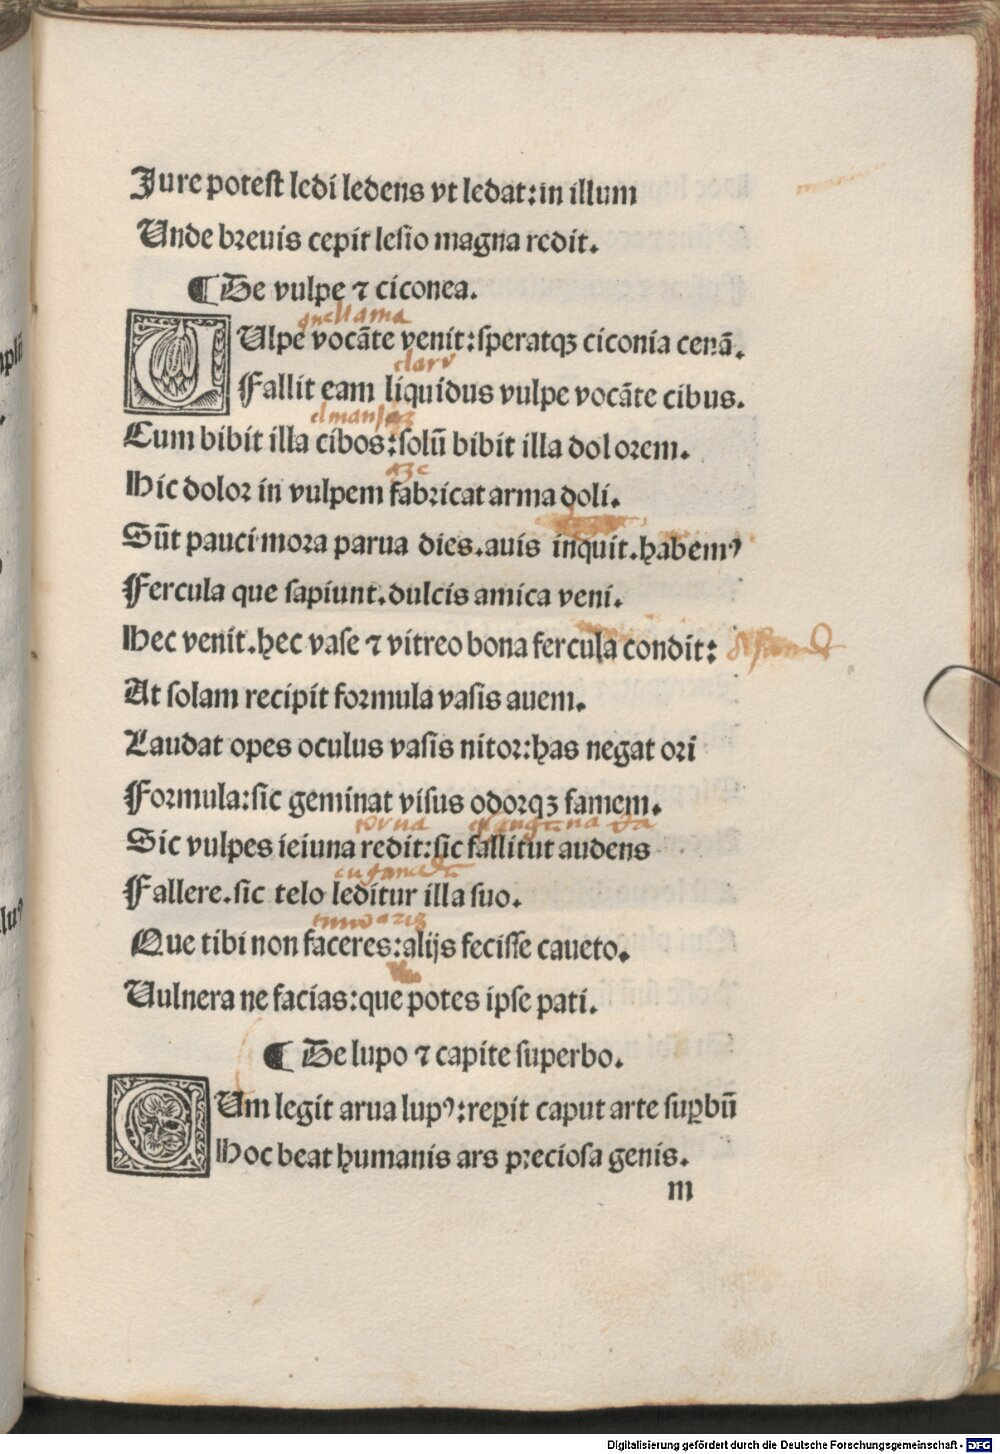 Jure potest ledi ledens vt ledat:in illum
Unde breuis cepit lesio magna redit.
¶ De vulpe ⁊ ciconea.
quellama
VUlpe vocāte venit:speratqꝫ ciconia cenā.
claro
Fallit eam liquidus vulpe vocāte cibus.
Cum bibit illa cibos:solū bibit illa dolorem.
Hic dolor in vulpem fabricat arma doli.
Sūt pauci mora parua dies.auis inquit.habemꝰ
Fercula que sapiunt.dulcis amica veni.
Hec venit.hec vase ⁊ vitreo bona fercula condit:
At solam recipit formula vasis auem.
Laudat opes oculus vasis nitor:has negat ori
Formula:sic geminat visus odorqꝫ famem.
Sic vulpes ieiuna redit:sic fallitut audens
Fallere.sic telo leditur illa suo.
Que tibi non faceres:alijs fecisse caueto.
Vulnera ne facias:que potes ipse pati.
¶ De lupo ⁊ capite superbo.
CUm legit arua lupꝰ:reꝑit caput arte suꝑbū
Hoc beat humanis ars preciosa genis.
m
Digitalisierung gefördert durch die Deutsche Forschungsgemeinschaft - DFG